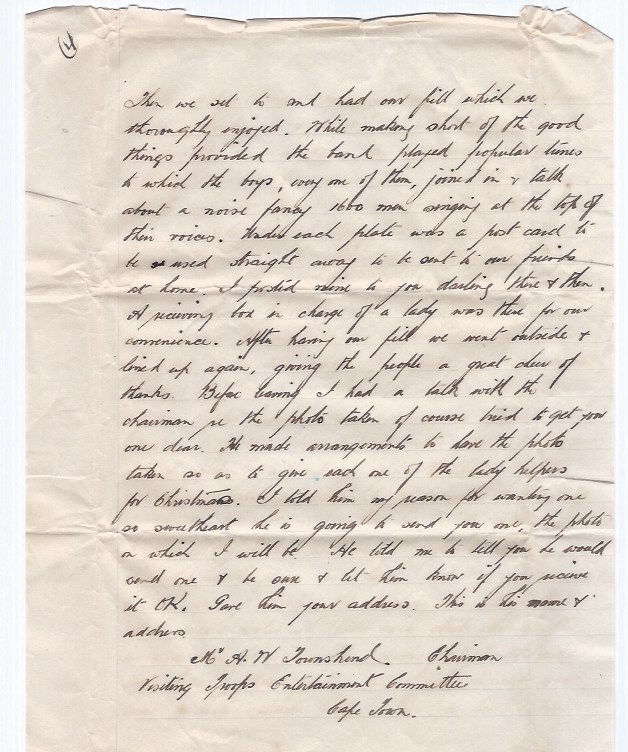 4
Then we set to and had our fill which we
thoroughly enjoyed. While making short of the good
things provided the band played popular tunes
to which the boys, every one of them, joined in & talk
about a noise fancy 1600 men singing at the top of
their voices. Under each plate was a post card to
be used straight away to be sent to our friends
at home. I posted mine to you darling there & then.
A receiving box in charge of a lady was there for our
convenience. After having our fill we went outside &
lined up again, giving the people a great cheer of
thanks. Before leaving I had a talk with the
chairman re the photo taken of course tried to get you
one dear. He made arrangements to have the photo
taken so as to give each one of the lady helpers
for Christmas. I told him my reason for wanting one
so sweetheart he is going to send you one, the photo
on which I will be. He told me to tell you he would
send one & be sure & let him know if you receive
it OK. Gave him your address. This is his name &
address
Mr A. W Townshend. Chairman
Visiting Troops Entertainment Committee
Cape Town.